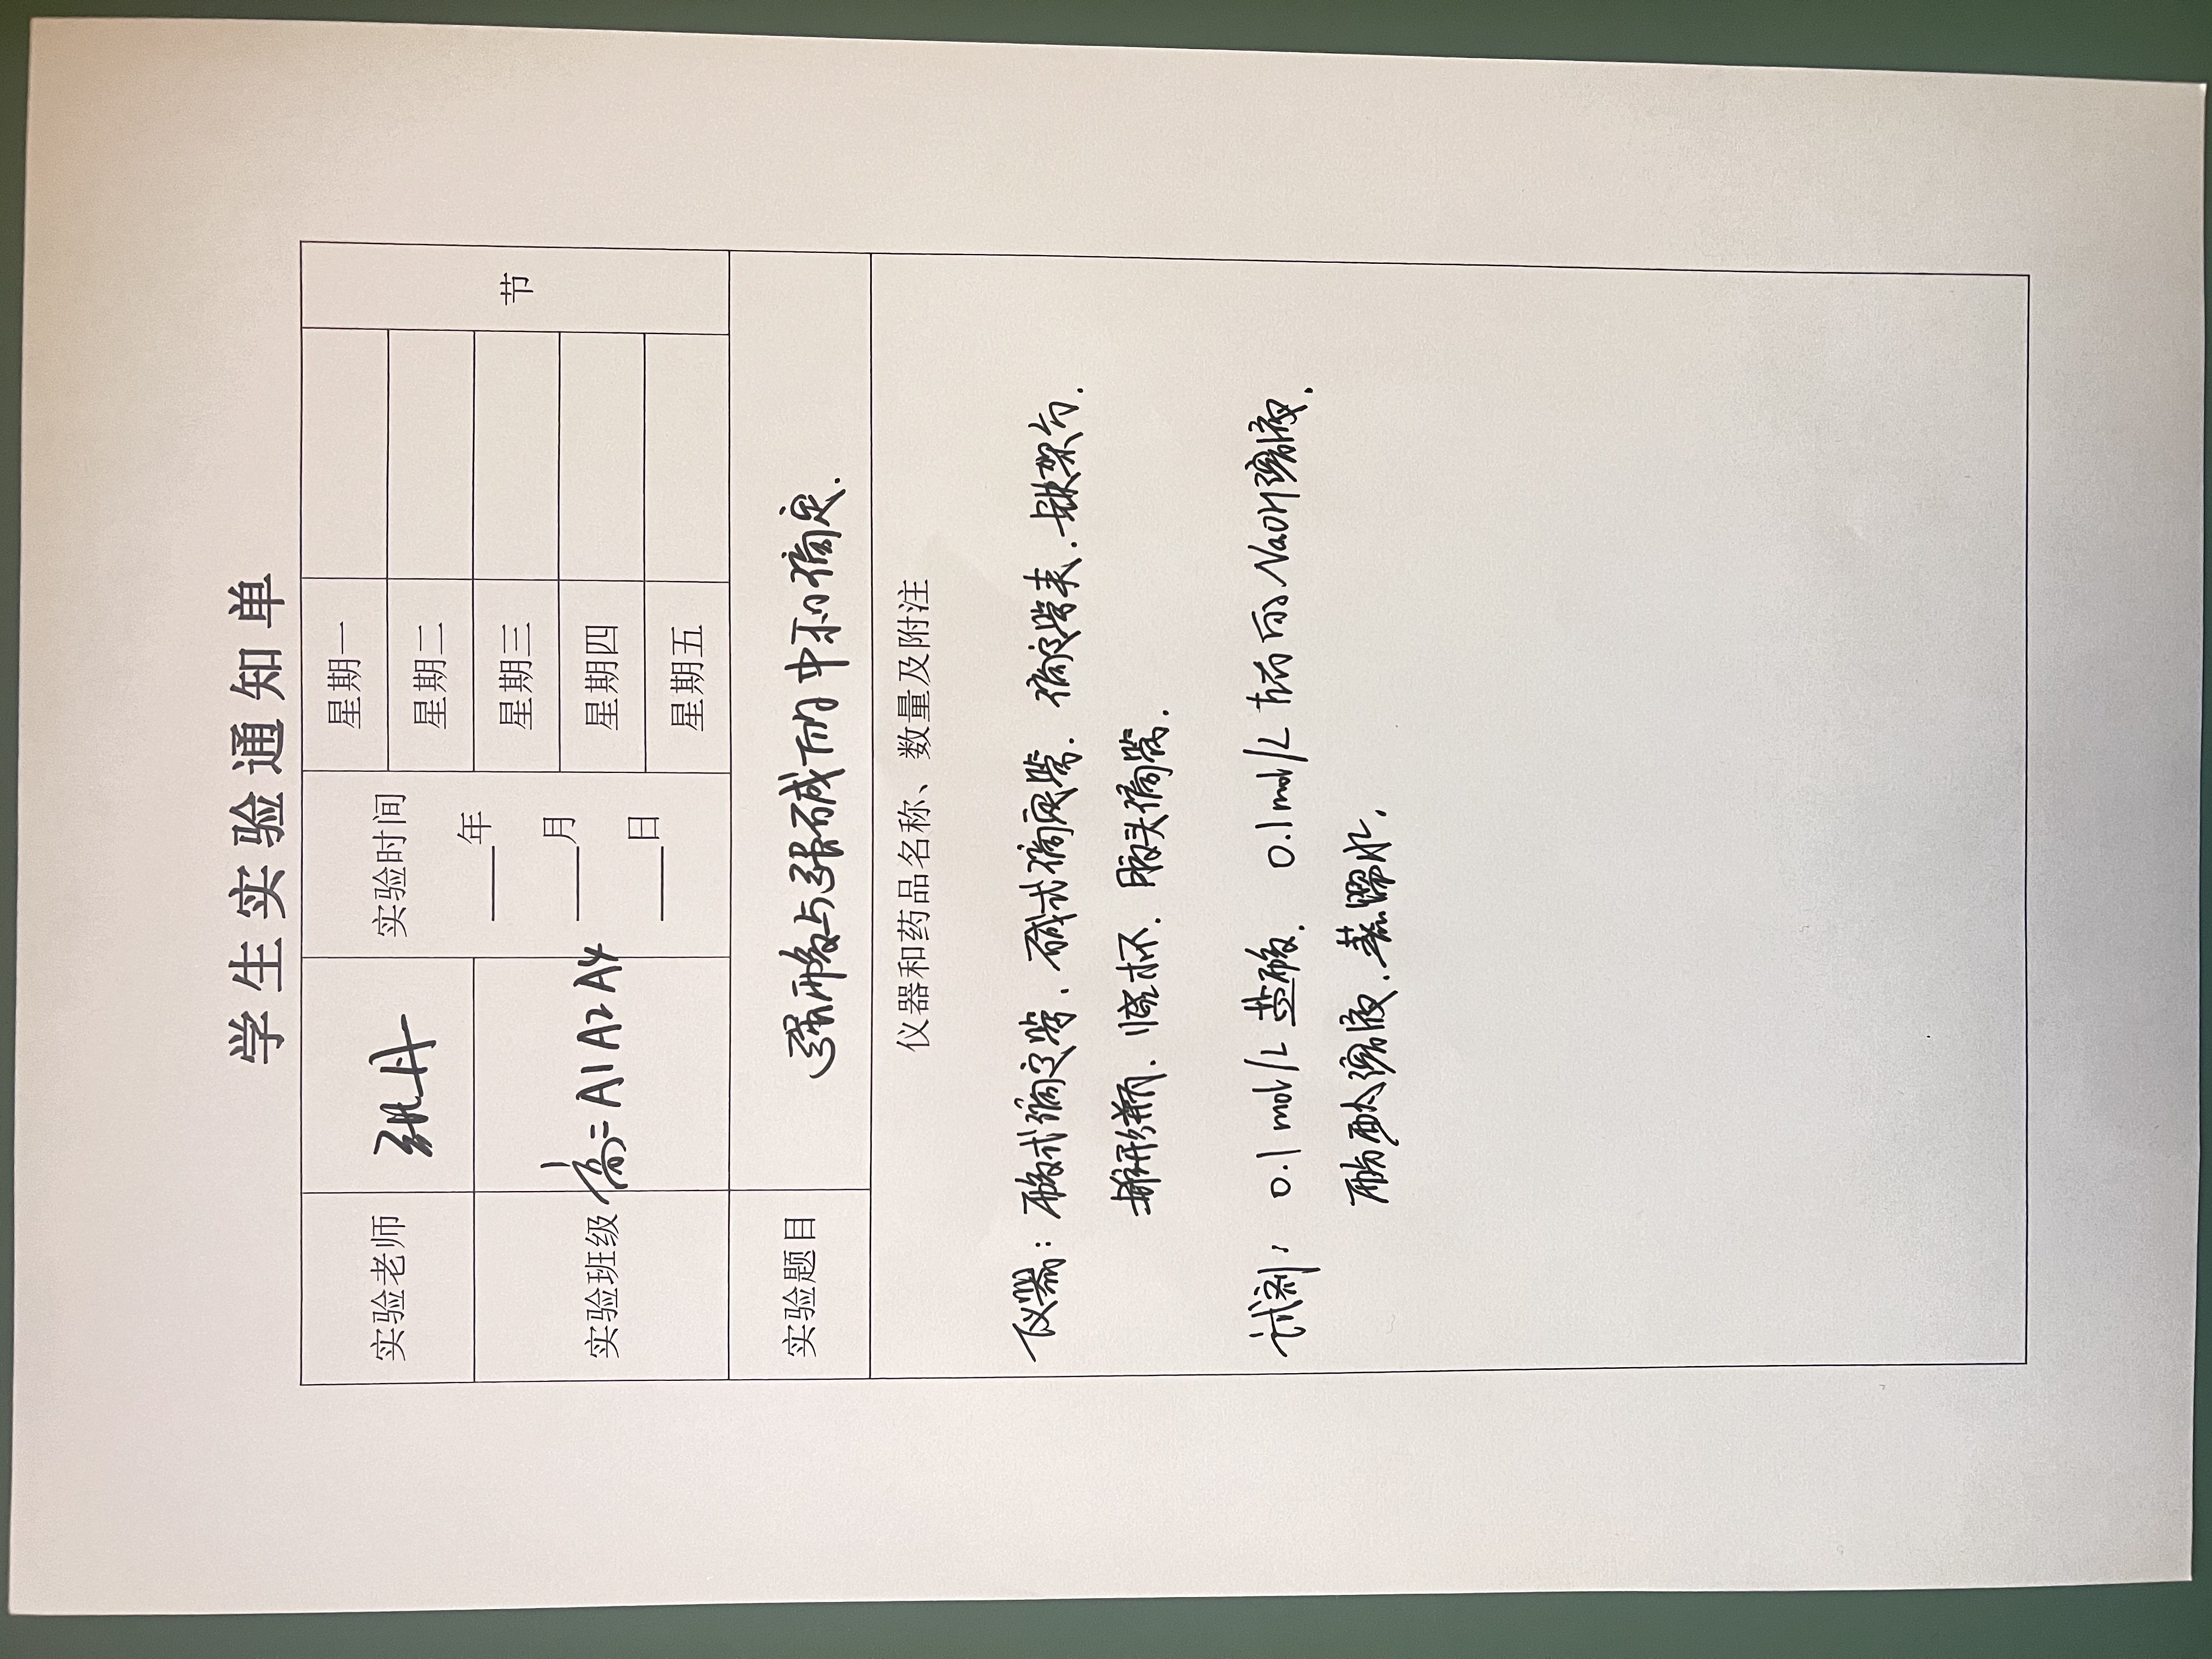 学生实验通知单
实验老师 张丹 实验时间 星期一 节
星期二
实验班级 高二A1A2A4 年 星期三
月 星期四
日 星期五
实验题目 强酸与强碱的中和滴定.
仪器和药品名称、数量及附注
仪器: 酸式滴定管、碱式滴定管. 滴定管夹. 铁架台.
锥形瓶. 烧杯. 胶头滴管.
试剂: 0.1mol/L 盐酸. 0.1mol/L 左右的NaOH溶液.
酚酞溶液. 蒸馏水.